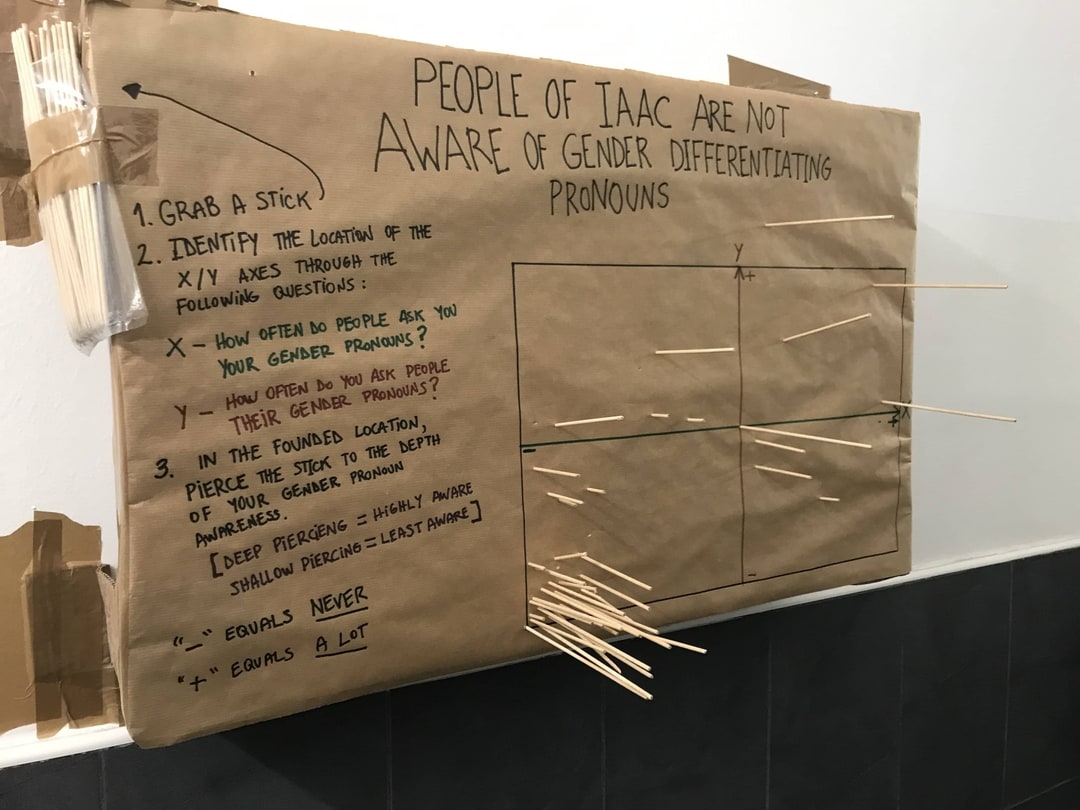 PEOPLE OF IAAC ARE NOT
AWARE OF GENDER DIFFERENTIATING
PRONOUNS
1. GRAB A STICK
2. IDENTIFY THE LOCATION OF THE
X/Y AXES THROUGH THE
FOLLOWING QUESTIONS:
X - HOW OFTEN DO PEOPLE ASK YOU
YOUR GENDER PRONOUNS?
Y - HOW OFTEN DO YOU ASK PEOPLE
THEIR GENDER PRONOUNS?
3. IN THE FOUNDED LOCATION,
PIERCE THE STICK TO THE DEPTH
OF YOUR GENDER PRONOUN
AWARENESS.
[DEEP PIERCIENG = HIGHLY AWARE
SHALLOW PIERCING = LEAST AWARE]
"-" EQUALS NEVER
"+" EQUALS A LOT
Y
+
X
+
-
-